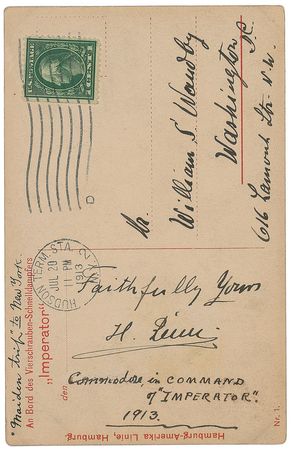 U.S. POSTAGE
1 CENT 1
HUDSON TERM. STA. N.Y.
JUL 20
11 PM
1913
Mr.
William S
Washington
D.C.
616 Lamont Str. N.W.
"Maiden trip" to New York.
An Bord des Vierschrauben-Schnelldampfers
„Imperator"
den
Faithfully Yours
H.
Commodore in COMMAND
of "IMPERATOR".
1913.
Hamburg-Amerika Linie, Hamburg.
Nr. 1.